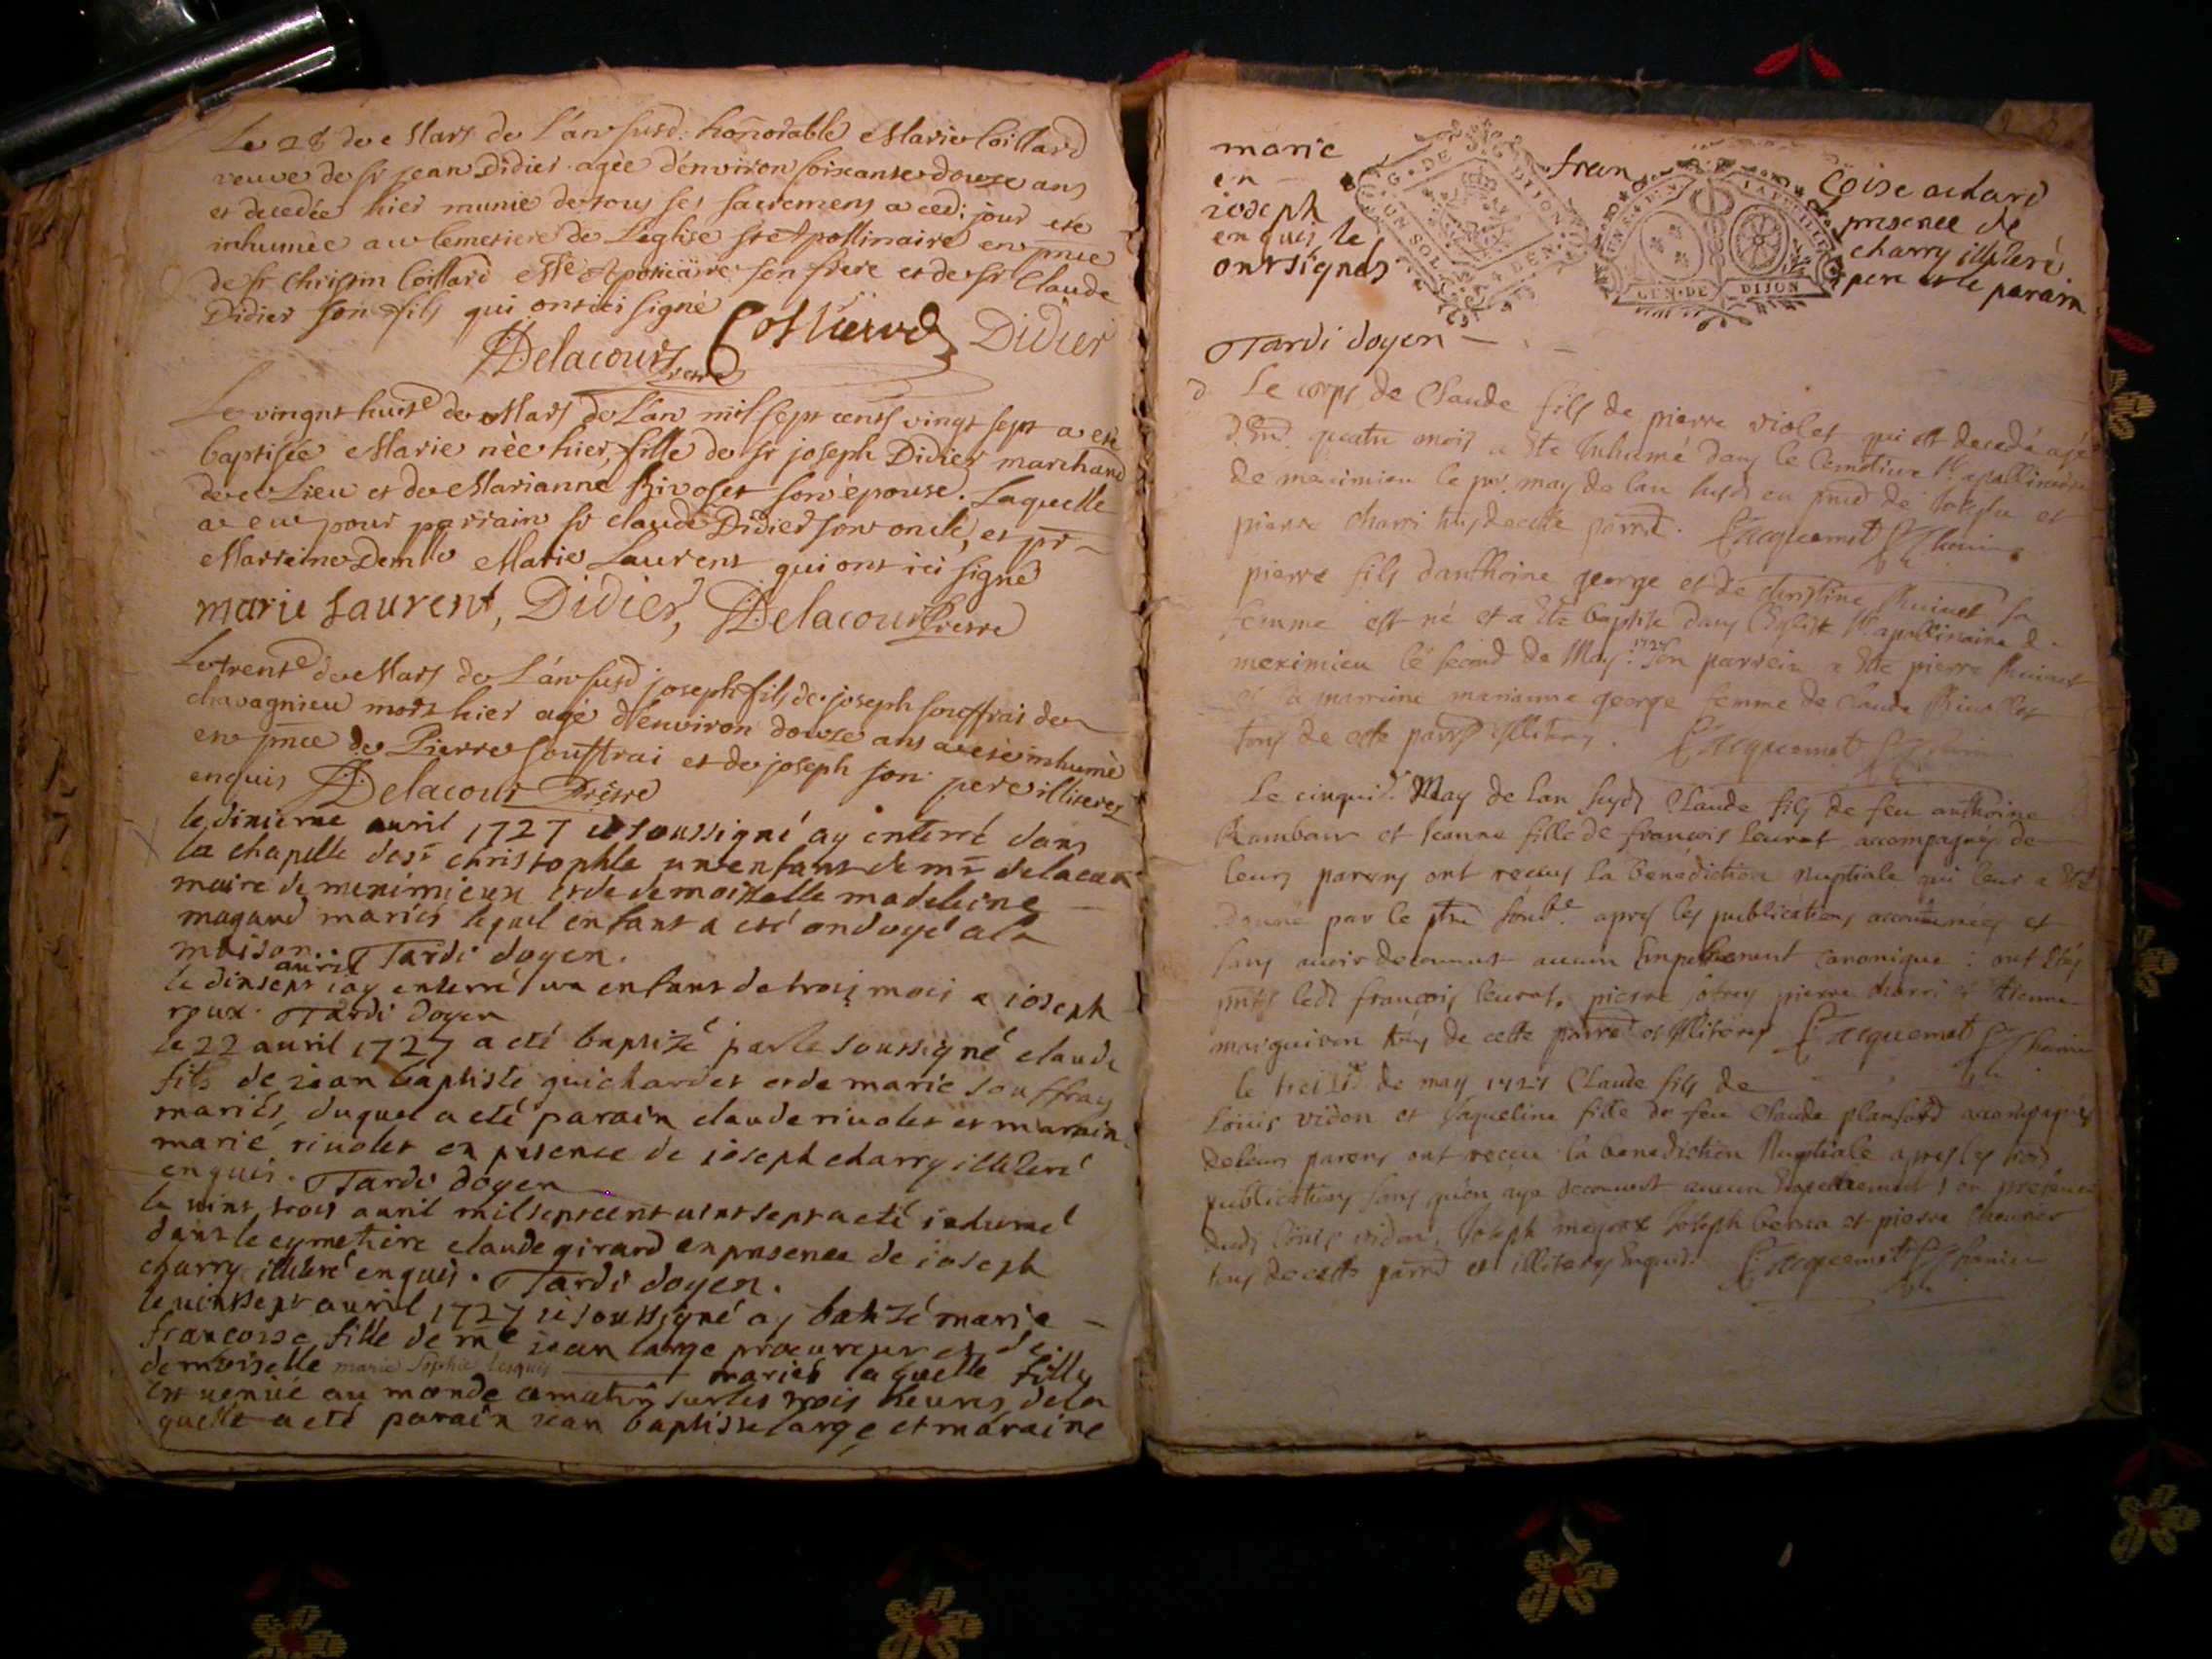 Le 28 de Mars de l'an susd. honnorable Marie Coillard
veuve de sr jean Didier agée d'environ soixante douze ans
et decedée hier munie de tous ses sacremens a cedi jour eté
inhumée au Cemetiere de L'eglise st Apollinaire en pnce
de sr Christin Coillard Apoticaire son frere et de sr Claude
Didier son fils qui ont ici signé
Delacour Prestre Coillard Didier
Le vingt huite de Mars de L'an mil sept cents vingt sept a eté
baptisée Marie née hier, fille de sr joseph Didier marchand
de ce Lieu et de Marianne Rivolet son épouse. Laquelle
a eu pour parrain sr claude Didier son oncle, et pr
Marreine Demlle Marie Laurent qui ont ici signé
marie Laurent, Didier, Delacour Prestre
Le trente de Mars de L'an susd joseph fils de joseph souffrai de
chavagnieu mort hier agé d'environ douze ans a eté inhumé
en pnce de Pierre souffrai et de joseph son pere illiteres
enquis Delacour Prestre
le dixieme auril 1727 ie soussigné ay enterré dans
la chapelle de st christophle un enfant de mr delacour
maire de meximieux et de demoiselle madeleine
magand mariés lequel enfant a eté ondoyé a la
maison. Tardi doyen.
le dixsept auril iay enterré un enfant de trois mois a ioseph
roux. Tardi doyen
le 22 auril 1727 a eté baptizé par le soussigné claude
fils de iean baptiste guichardet et de marie souffray
mariés, duquel a eté parain claude riuolet et maraine
marie riuolet en presence de ioseph charry illiteré
enquis. Tardi doyen
le uint trois auril mil sept cent uint sept a eté inhumé
dans le cymetiere claude girard en presence de ioseph
charry illiteré enquis. Tardi doyen.
le uintsept auril 1727 ie soussigné ay batizé marie
francoise fille de me iean large procureur et de
demoiselle marie Sophie mariés laquelle fille
est uenue au monde ce matin sur les trois heures de la
quelle a eté parain iean baptiste large et maraine
marie fran çoise achard
en presence de
ioseph charry illiteré
enquis le pere et le parain
ont signés
G. DE DIJON UN SOL 4 DEN
GEN. DE DIJON
Tardi doyen
Le corps de Claude fils de pierre violet qui est decedé agé
d'End. quatre mois a Ete Inhumé dans le Cemetiere st apollinaire
de meximieu le pr. may de lan susd en pnce de Joseph et
pierre charri tus de cette parre. Jacquemet
pierre fils d'anthoine george et de christine sa
femme est né et a Ete baptisé dans l'Eglise st apollinaire de
meximieu le second de May 1727 son parrein a Ete pierre
et la marreine marianne george femme de Claude
tous de cette parre illiteres. Jacquemet
Le cinqui. May de lan susd Claude fils de feu anthoine
Rambaur et Jeanne fille de francois leurat accompagnés de
leurs parens ont receus la benediction nuptiale qui leur a Eté
donné par le ptre sousé. apres les publications accoutumées et
sans avoir decouvert aucun Empechement canonique: ont Etés
pnts led françois leurat, pierre pierre charri et Etienne
tous de cette parre et illiteres Jacquemet
le treize de may 1727 Claude fils de
Louis vidon et Jaqueline fille de feu Claude planford accompagnés
de leurs parens ont receu la benediction Nuptiale apres les trois
publications sans qu'on aye decouvert aucun Empechement, en presence
dud Louis vidon, Joseph Joseph et pierre
tous de cette parre et illiteres Enquis. Jacquemet